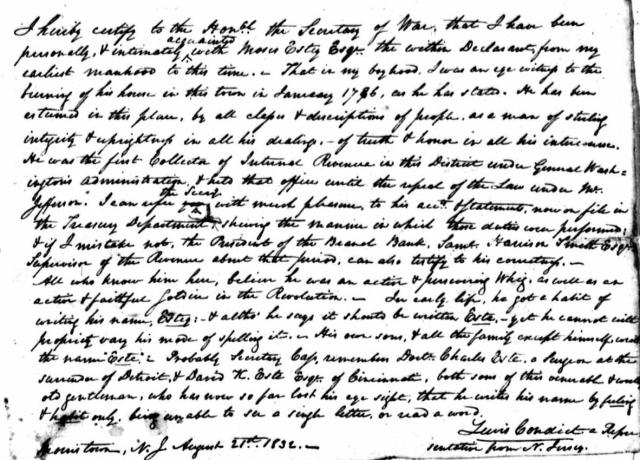 I hereby certify to the Honbl. the Secretary of War, that I have been
personally, & intimately acquainted with Moses Estey Esqr. the within Declarant, from my
earliest manhood to this time. – That in my boyhood, I was an eye witness to the
burning of his house in this town in January 1786, as he has stated. He has been
esteemed in this place, by all classes & descriptions of people, as a man of sterling
integrity & uprightness in all his dealings, – of truth & honor in all his intercourse.
He was the first Collector of Internal Revenue in this District under General Wash=
ingtons administration, & held that office until the repeal of the Law under Mr.
Jefferson. I can refer the Secy. with much pleasure, to his acct. & statements, now on file in
the Treasury Department, shewing the manner in which those duties were performed;
& if I mistake not, the President of the Branch Bank, Saml. Harrison Smith Esqr.
Supervisor of the Revenue about that period, can also testify to his courtesy. –
All who know him here, believe he was an active & persevering Whig, as well as an
active & faithful Soldier in the Revolution. – In early life, he got a habit of
writing his name, Estey: & altho' he says it should be written Este, – yet he cannot with
propriety vary his mode of spelling it. – His own sons, & all the family except himself, write
the name Este. – Probably Secretary Cass, remembers Doctr. Charles Este, a Surgeon at the
surrender of Detroit, & David K. Este Esqr. of Cincinnati, both sons of this venerable &
old gentleman, who has now so far lost his eye sight, that he writes his name by feeling
& habit only, being unable to see a single letter, or read a word.
Lewis Condict a Repre
Morristown, N. J. August 21st. 1832. – sentative from N. Jersey.